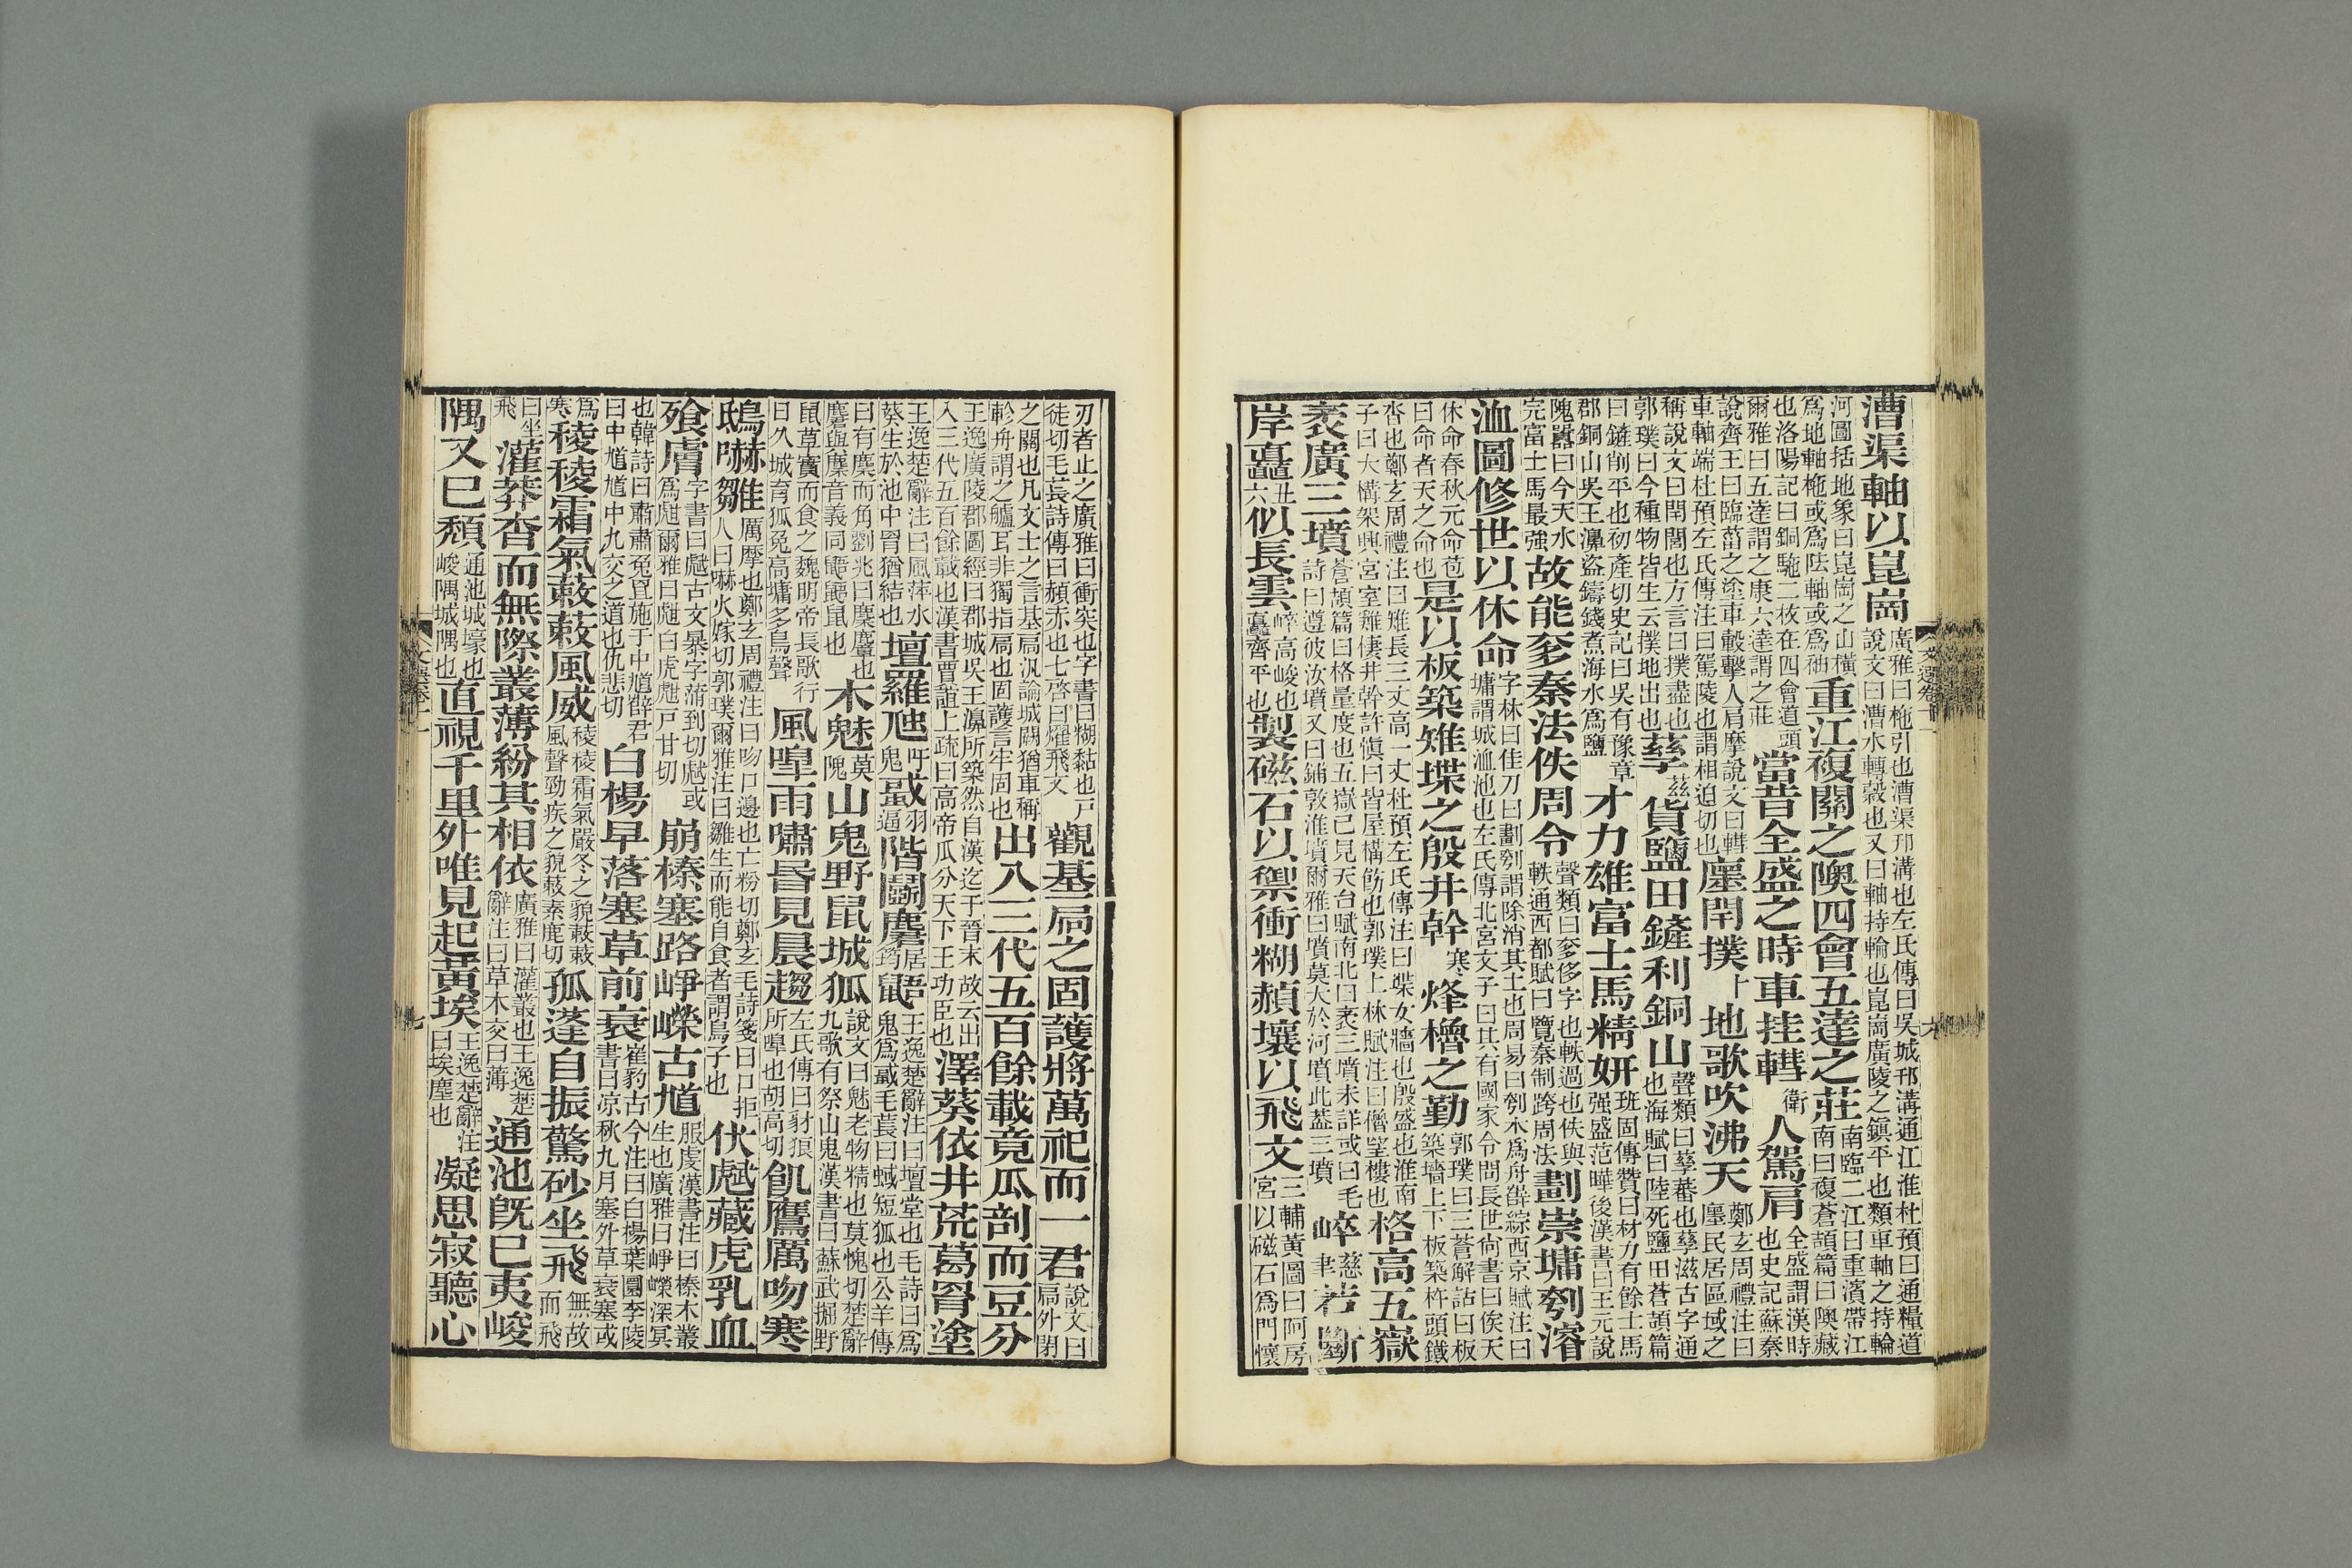 漕渠軸以崑崗廣雅曰柂引也漕渠邗溝也左氏傳曰吳城邗溝通江淮杜預曰通糧道說文曰漕水轉轂也又曰軸持輪也崑崗廣陵之鎮平也類車軸之持輪
河圖括地象曰崑崗之山橫爲地軸柂或爲阹軸或爲袖重江複關之隩四會五達之莊南臨二江曰重濱帶江南曰複蒼頡篇曰隩藏
也洛陽記曰銅駞二枚在四會道頭爾雅曰五達謂之康六達謂之莊當昔全盛之時車挂轊衛人駕肩全盛謂漢時也史記蘇秦
說齊王曰臨菑之塗車轂擊人肩摩說文曰轊車軸端杜預左氏傳注曰駕陵也謂相迫切也廛閈撲卜地歌吹沸天鄭玄周禮注曰廛民居區域之
稱說文曰閈閭也方言曰撲盡也郭璞曰今種物皆生云撲地出也孳茲貨鹽田鏟利銅山聲類曰孳蕃也孳滋古字通也海賦曰陸死鹽田蒼頡篇
曰鏟削平也初產切史記曰吳有豫章郡銅山吳王濞盜鑄錢煮海水爲鹽才力雄富士馬精姸班固傳贊曰材力有餘士馬强盛范曄後漢書曰王元說
隗囂曰今天水完富士馬最强故能奓秦法佚周令聲類曰奓侈字也軼過也佚與軼通西都賦曰覽秦制跨周法劃崇墉刳濬
洫圖修世以休命字林曰佳刀曰劃刳謂除消其土也周易曰刳木爲舟薛綜西京賦注曰墉謂城洫池也左氏傳北宮文子曰其有國家令問長世尙書曰俟天
休命春秋元命苞曰命者天之命也是以板築雉堞之殷井幹寒烽櫓之勤郭璞曰三蒼解詁曰板築墻上下板築杵頭鐵
沓也鄭玄周禮注曰雉長三丈高一丈杜預左氏傳注曰堞女牆也殷盛也淮南子曰大構架興宮室雞棲井幹許慎曰皆屋構飭也郭璞上林賦注曰櫓望樓也格高五嶽
袤廣三墳蒼頡篇曰格量度也五嶽已見天台賦南北曰袤三墳未詳或曰毛詩曰遵彼汝墳又曰鋪敦淮墳爾雅曰墳莫大於河墳此蓋三墳崪慈聿若斷
岸矗丑六似長雲崪高峻也矗齊平也製磁石以禦衝糊赬壤以飛文三輔黃圖曰阿房宮以磁石爲門懷
刃者止之廣雅曰衝突也字書曰糊黏也戸徒切毛萇詩傳曰赬赤也七啓曰燿飛文觀基扃之固護將萬祀而一君說文曰扃外閉
之關也凡文士之言基扃汎論城闕猶車稱軫舟謂之艫耳非獨指扃也固護言牢固也出入三代五百餘載竟瓜剖而豆分
王逸廣陵郡圖經曰郡城吳王濞所築然自漢迄于晉末故云出入三代五百餘載也漢書賈誼上疏曰高帝瓜分天下王功臣也澤葵依井荒葛罥塗
王逸楚辭注曰風萍水葵生於池中罥猶結也壇羅虺呼鬼蜮羽逼階鬭麏居筠鼯王逸楚辭注曰壇堂也毛詩曰爲鬼爲蜮毛萇曰蜮短狐也公羊傳
曰有麋而角劉兆曰麋麏也麏與麇音義同鼯鼯鼠也木魅莫隗山鬼野鼠城狐說文曰魅老物精也莫愧切楚辭九歌有祭山鬼漢書曰蘇武掘野
鼠草實而食之魏明帝長歌行曰久城育狐兔高墉多鳥聲風嘷雨嘯昏見晨趨左氏傳曰豺狼所嘷也胡高切飢鷹厲吻寒
鴟嚇雛厲摩也鄭玄周禮注曰吻口邊也亡粉切鄭玄毛詩箋曰口拒人曰嚇火嫁切郭璞爾雅注曰雛生而能自食者謂鳥子也伏虣藏虎乳血
飱膚字書曰虣古文暴字蒲到切虣或爲甝爾雅曰甝白虎甝戸甘切崩榛塞路崢嶸古馗服虔漢書注曰榛木叢生也廣雅曰崢嶸深冥
也韓詩曰肅肅兔罝施于中馗薛君曰中馗馗中九交之道也仇悲切白楊早落塞草前衰崔豹古今注曰白楊葉圓李陵書曰凉秋九月塞外草衰塞或
爲寒稜稜霜氣蔌蔌風威稜稜霜氣嚴冬之貌蔌蔌風聲勁疾之貌蔌素鹿切孤蓬自振驚砂坐飛無故而飛
曰坐飛灌莽杳而無際叢薄紛其相依廣雅曰灌叢也王逸楚辭注曰草木交曰薄通池旣已夷峻
隅又已頹通池城壕也峻隅城隅也直視千里外唯見起黃埃王逸楚辭注曰埃塵也凝思寂聽心